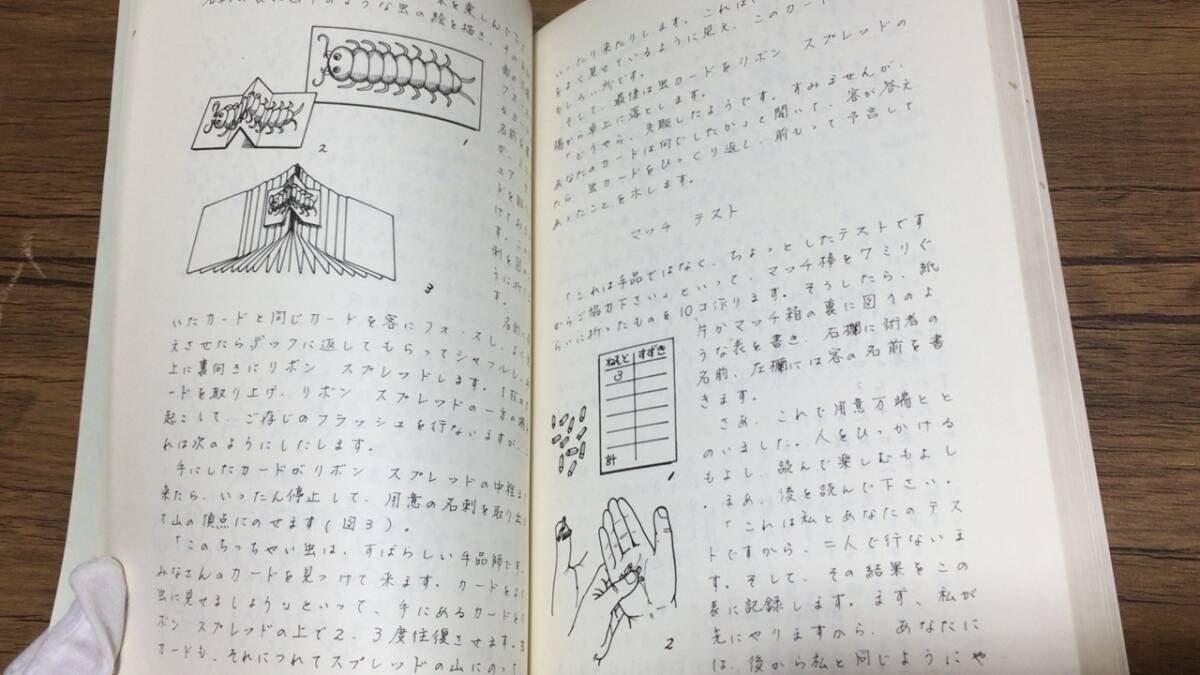 な虫の絵を描き、
1
2
3
いたカードと同じカードを客にフォースし、
えさせたらデックに返してもらってシャフルし
上に裏向きにリボン　スプレッドします。1枚の
ードを取り上げ、リボン　スプレッドの一方の
起こして、ご存じのフラッシュを行ないますが、
れは次のようにしたします。
手にしたカードがリボン　スプレッドの中程
来たら、いったん停止して、用意の名刺を取り出
山の頂点にのせます(図3)。
「このちっちゃい虫は、すばらしい手品師です。
みなさんのカードを見つけて来ます。カードをよく
虫に見せましょう」といって、手にあるカードを
ボン　スプレッドの上で2、3度往復させます。
カードも、それにつれてスプレッドの山にのって
いったり来たりします。これは
をよく見せているように見え、このカード
もしろい所です。
そして、最後は虫カードをリボン　スプレッドの
端から卓上に落とします。
「どうやら、失敗したようです。すみませんが、
あなたのカードは何でしたか」と聞いて、客が答え
たら　虫カードをひっくり返し、前もって予言して
あったことを示します。
マッチ　テスト
「これは手品ではなく、ちょっとしたテストです
からご協力下さい」といって、マッチ棒を7ミリぐ
らいに折ったものを10コ作ります。そうしたら、紙
片かマッチ箱の裏に図1のよ
うな表を書き、右欄に術者の
名前、左欄には客の名前を書
きます。
さあ、これで用意万端とと
のいました。人をひっかける
もよし、読んで楽しむもよし
。まあ、後を読んで下さい。
「これは私とあなたのテス
トですから、二人で行ないま
す。そして、その結果をこの
表に記録します。まず、私が
先にやりますから、あなたに
は、後から私と同じようにや
ねもと すずき
3
計
1
2